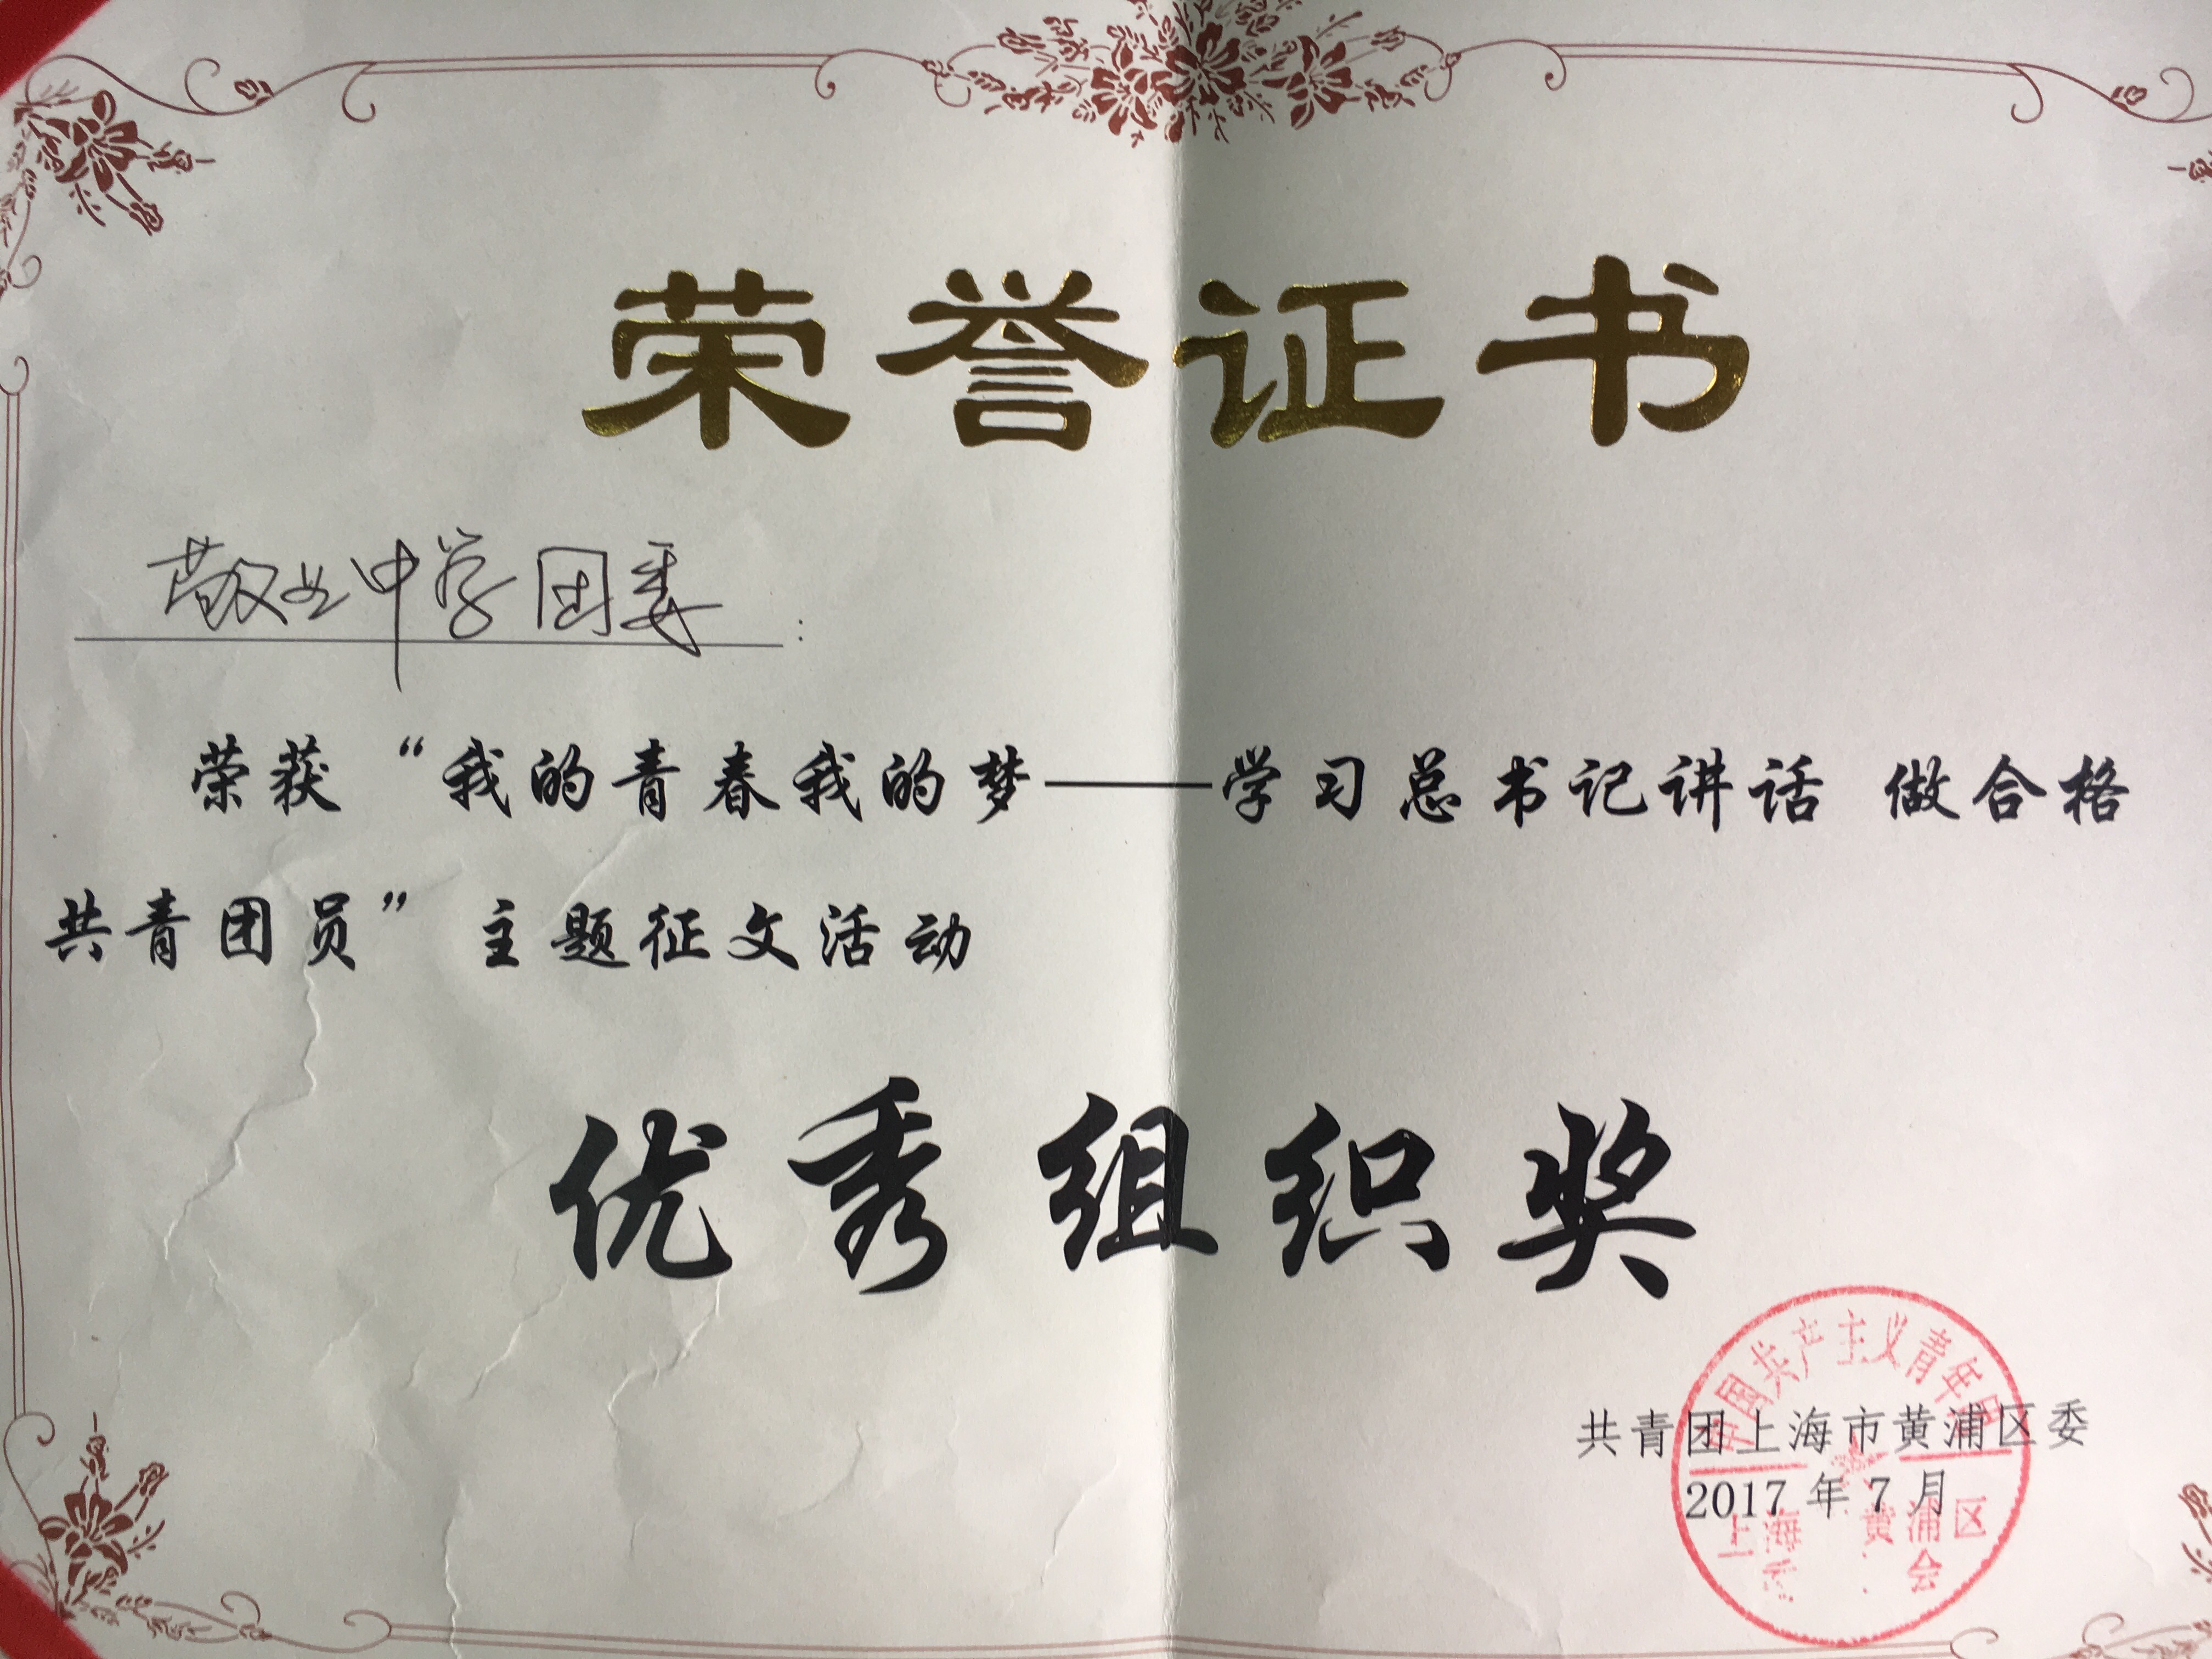 荣誉证书
敬业中学团委:
荣获“我的青春我的梦——学习总书记讲话 做合格
共青团员”主题征文活动
优秀组织奖
中国共产主义青年团
共青团上海市黄浦区委
2017年7月
上海 黄浦区
委 会